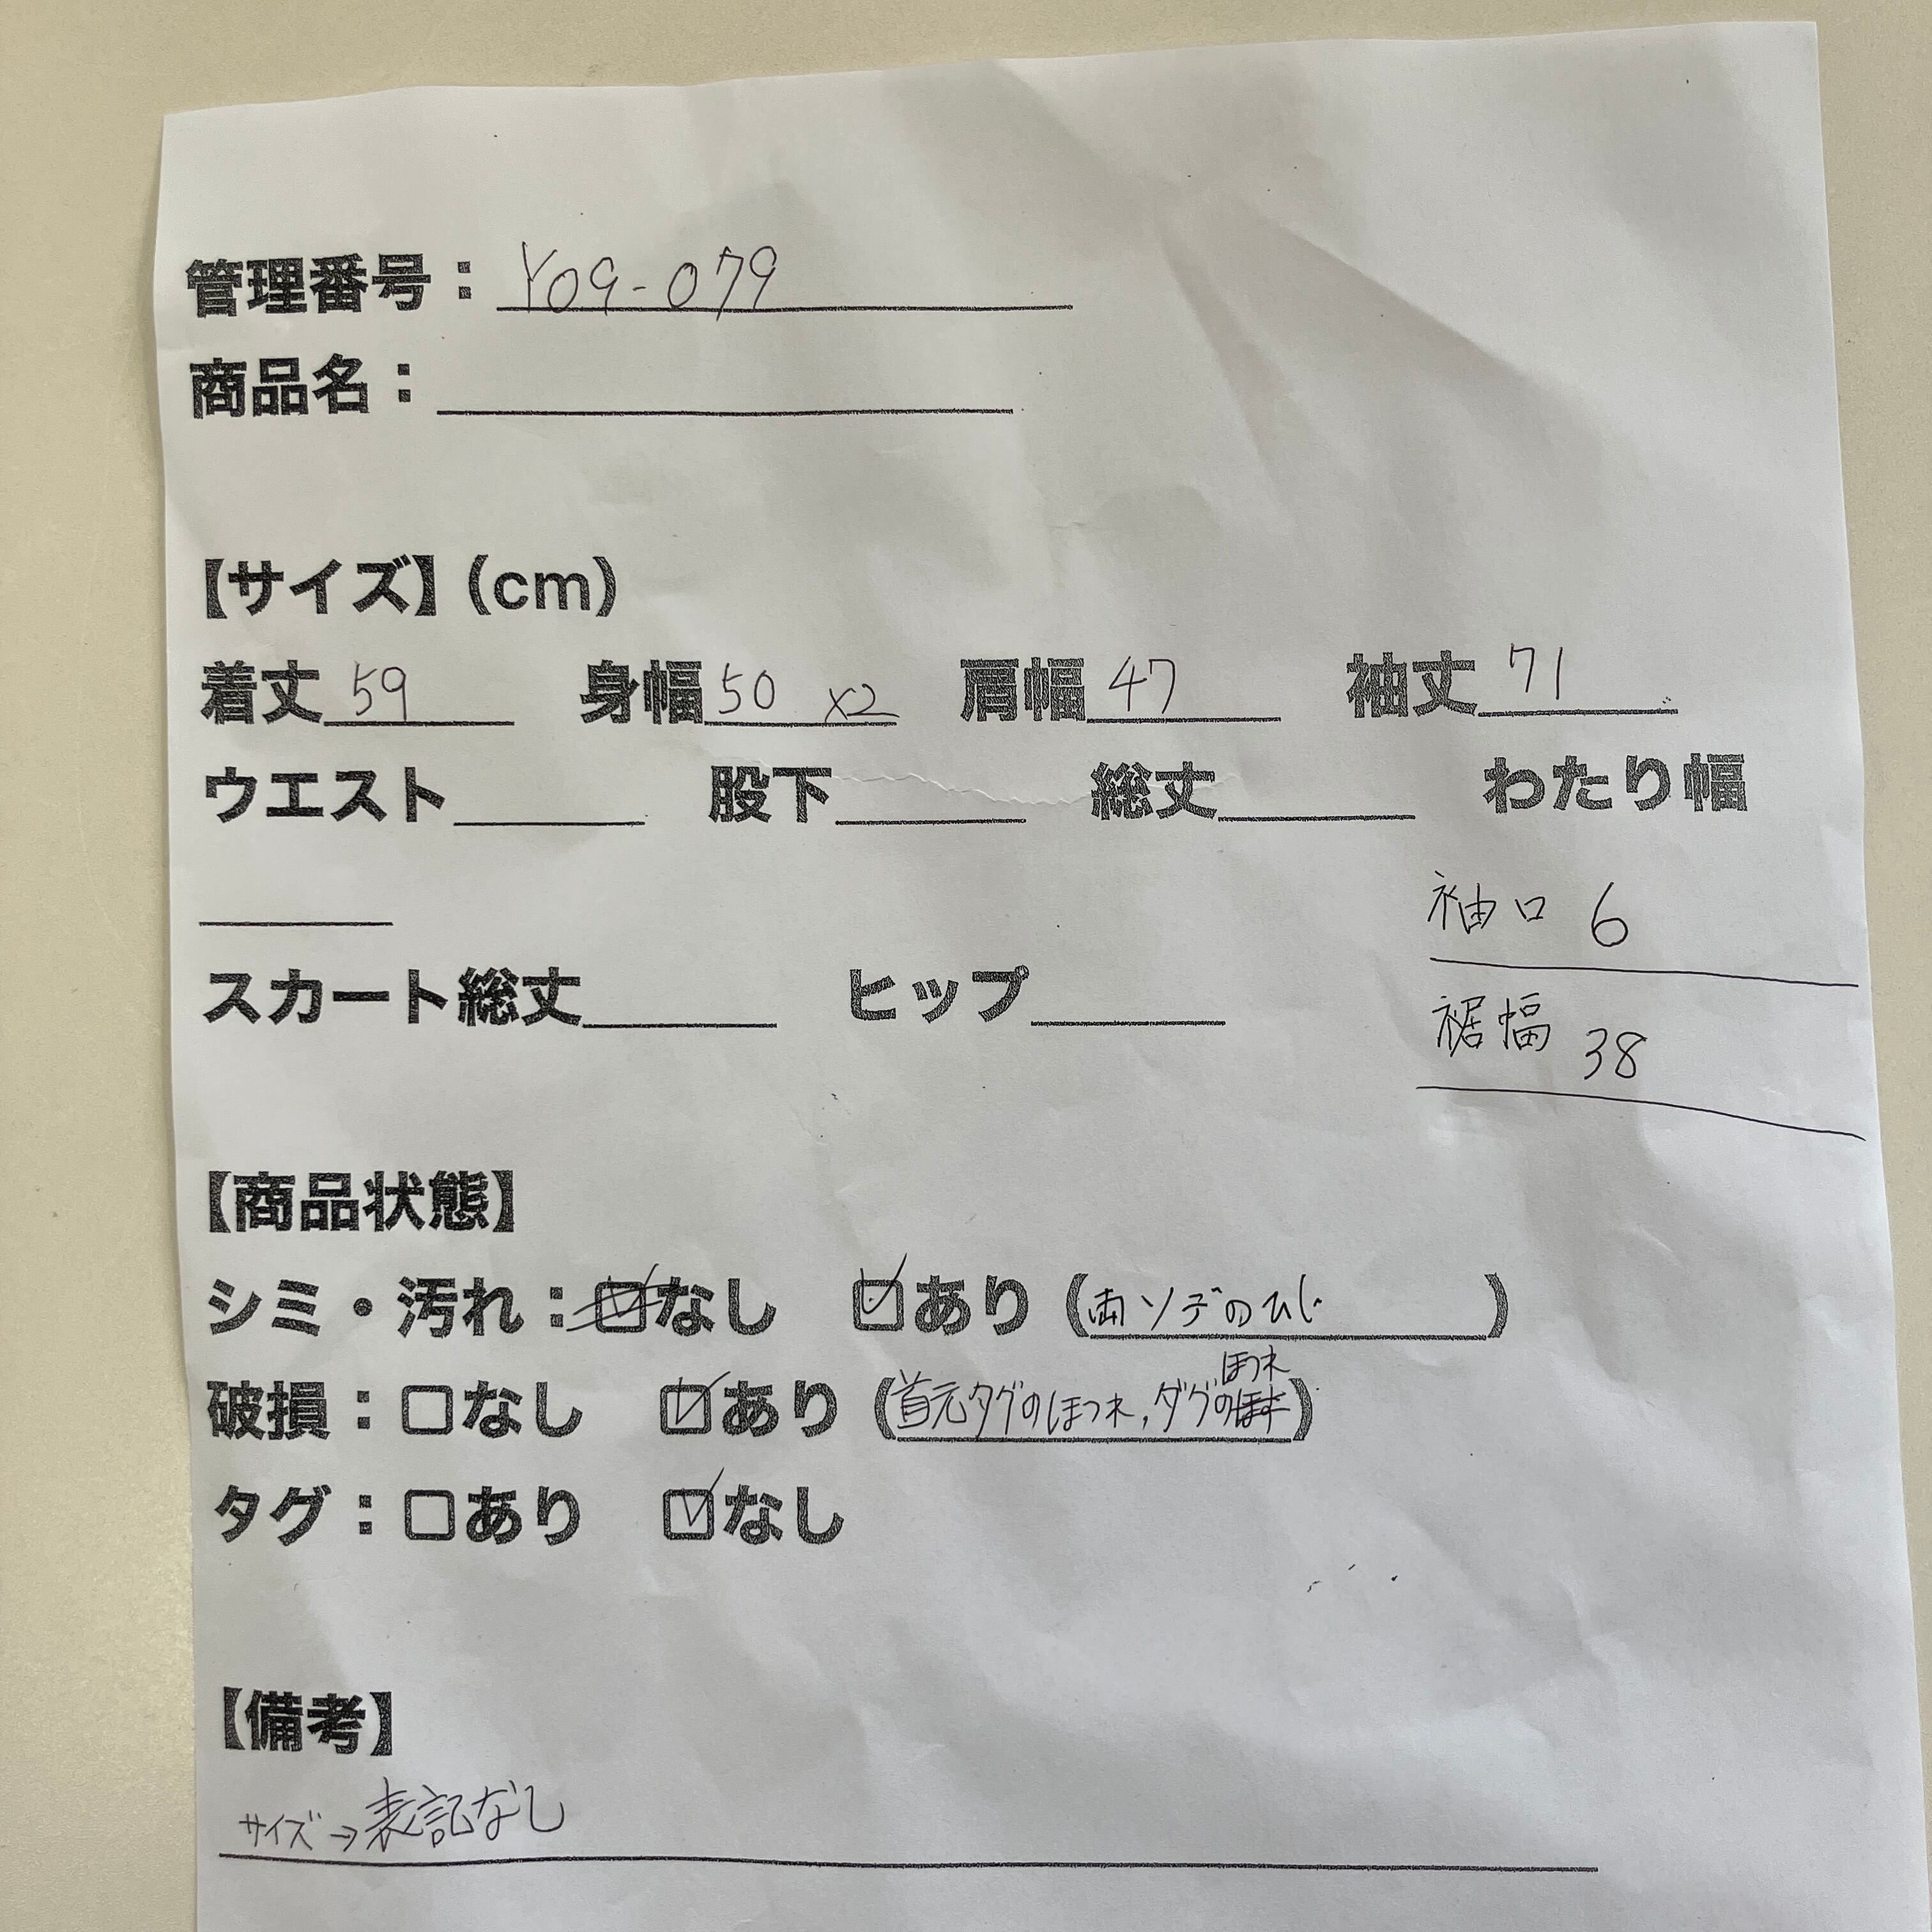 管理番号：Y09-079
商品名：
【サイズ】(cm)
着丈 59 身幅 50 x2 肩幅 47 袖丈 71
ウエスト 股下 総丈 わたり幅
袖口 6
スカート総丈 ヒップ
裾幅 38
【商品状態】
シミ・汚れ：☑なし ☑あり (両ソデのひじ)
破損：□なし ☑あり (首元タグのほつれ, タグのほつれ)
タグ：□あり ☑なし
【備考】
サイズ→表記なし